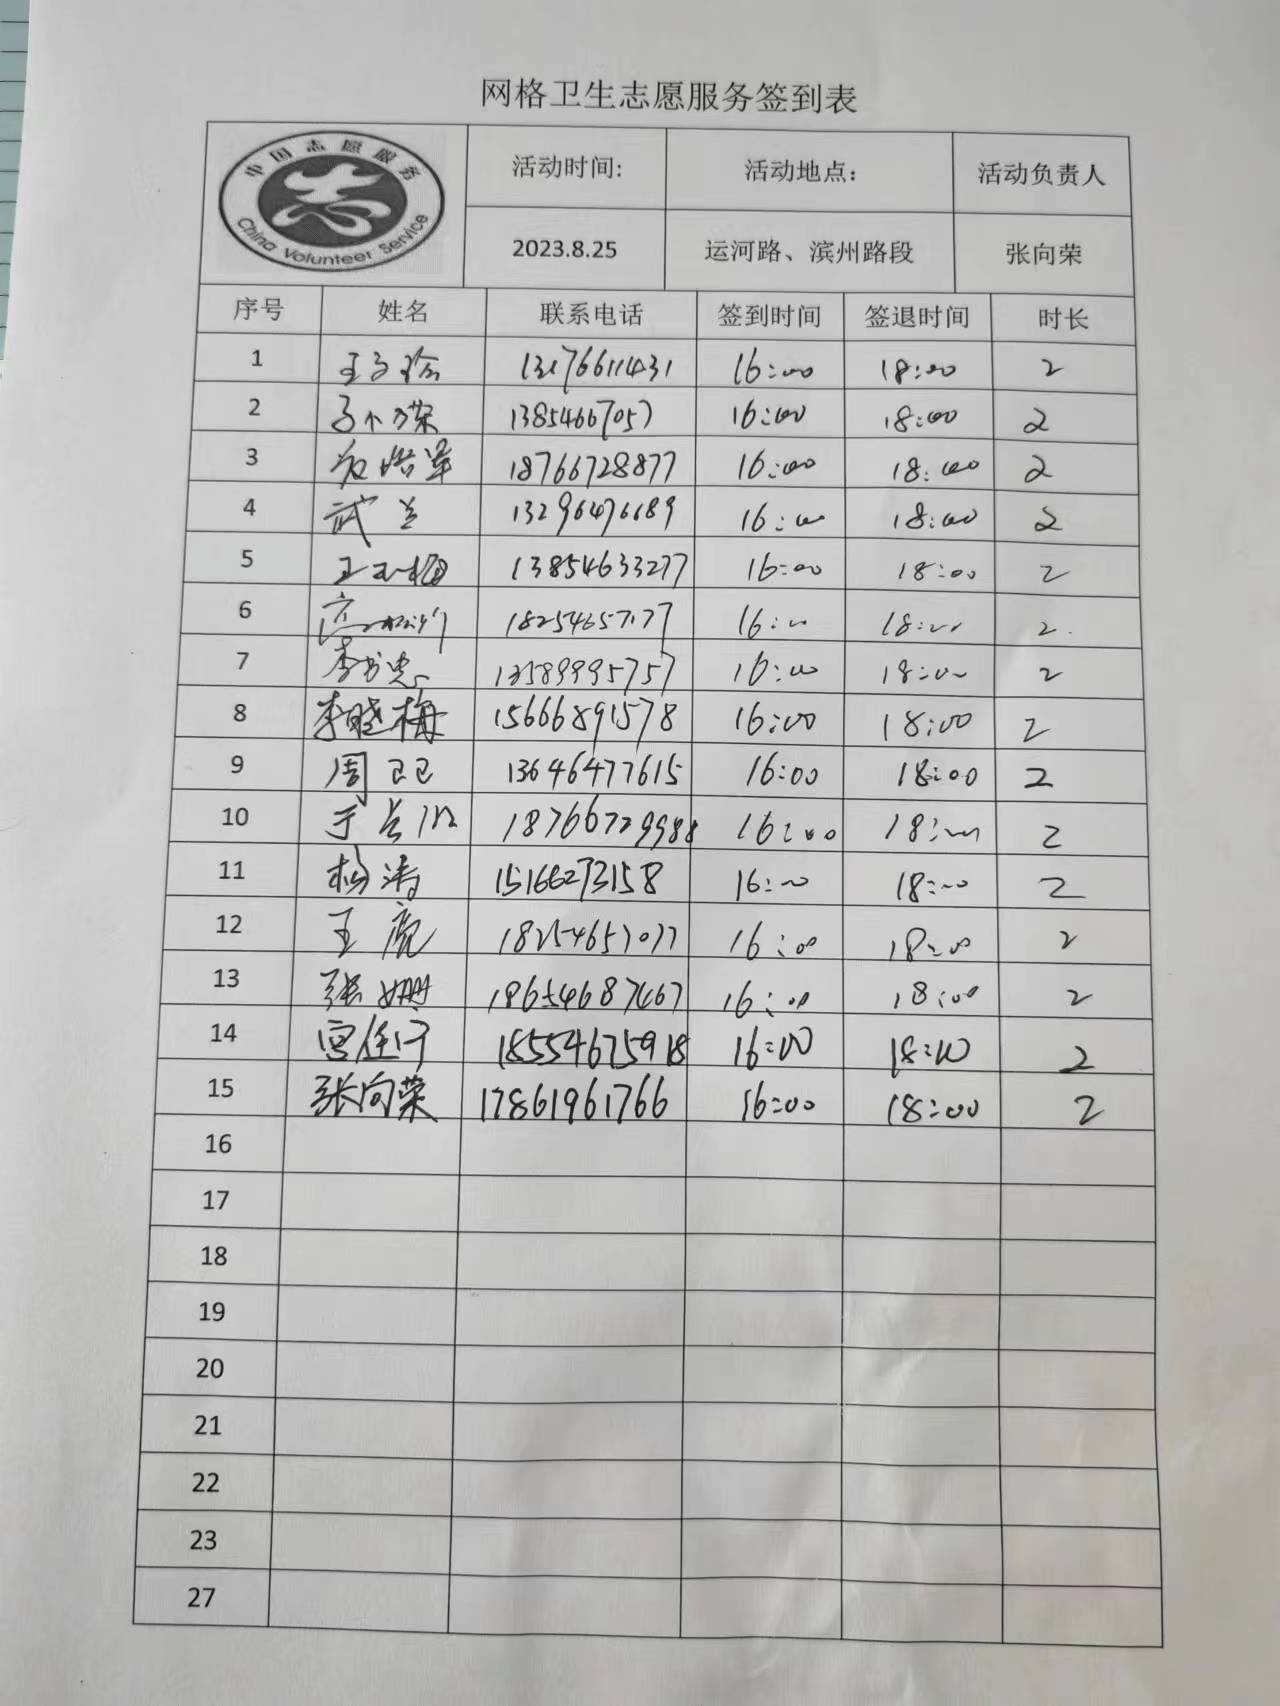 网格卫生志愿服务签到表
中国志愿服务
China Volunteer Service
活动时间: 活动地点: 活动负责人
2023.8.25 运河路、滨州路段 张向荣
序号 姓名 联系电话 签到时间 签退时间 时长
1 16:00 18:00 2
2 16:00 18:00 2
3 18766728877 16:00 18:00 2
4 武兰 16:00 18:00 2
5 王玉梅 13854633277 16:00 18:00 2
6 16:00 18:00 2
7 13589995757 16:00 18:00 2
8 李晓梅 15666891578 16:00 18:00 2
9 周 13646477615 16:00 18:00 2
10 18766729988 16:00 18:00 2
11 杨涛 15166273158 16:00 18:00 2
12 王 18254657077 16:00 18:00 2
13 张姗 18654687667 16:00 18:00 2
14 18554675918 16:00 18:00 2
15 张向荣 17861961766 16:00 18:00 2
16
17
18
19
20
21
22
23
27